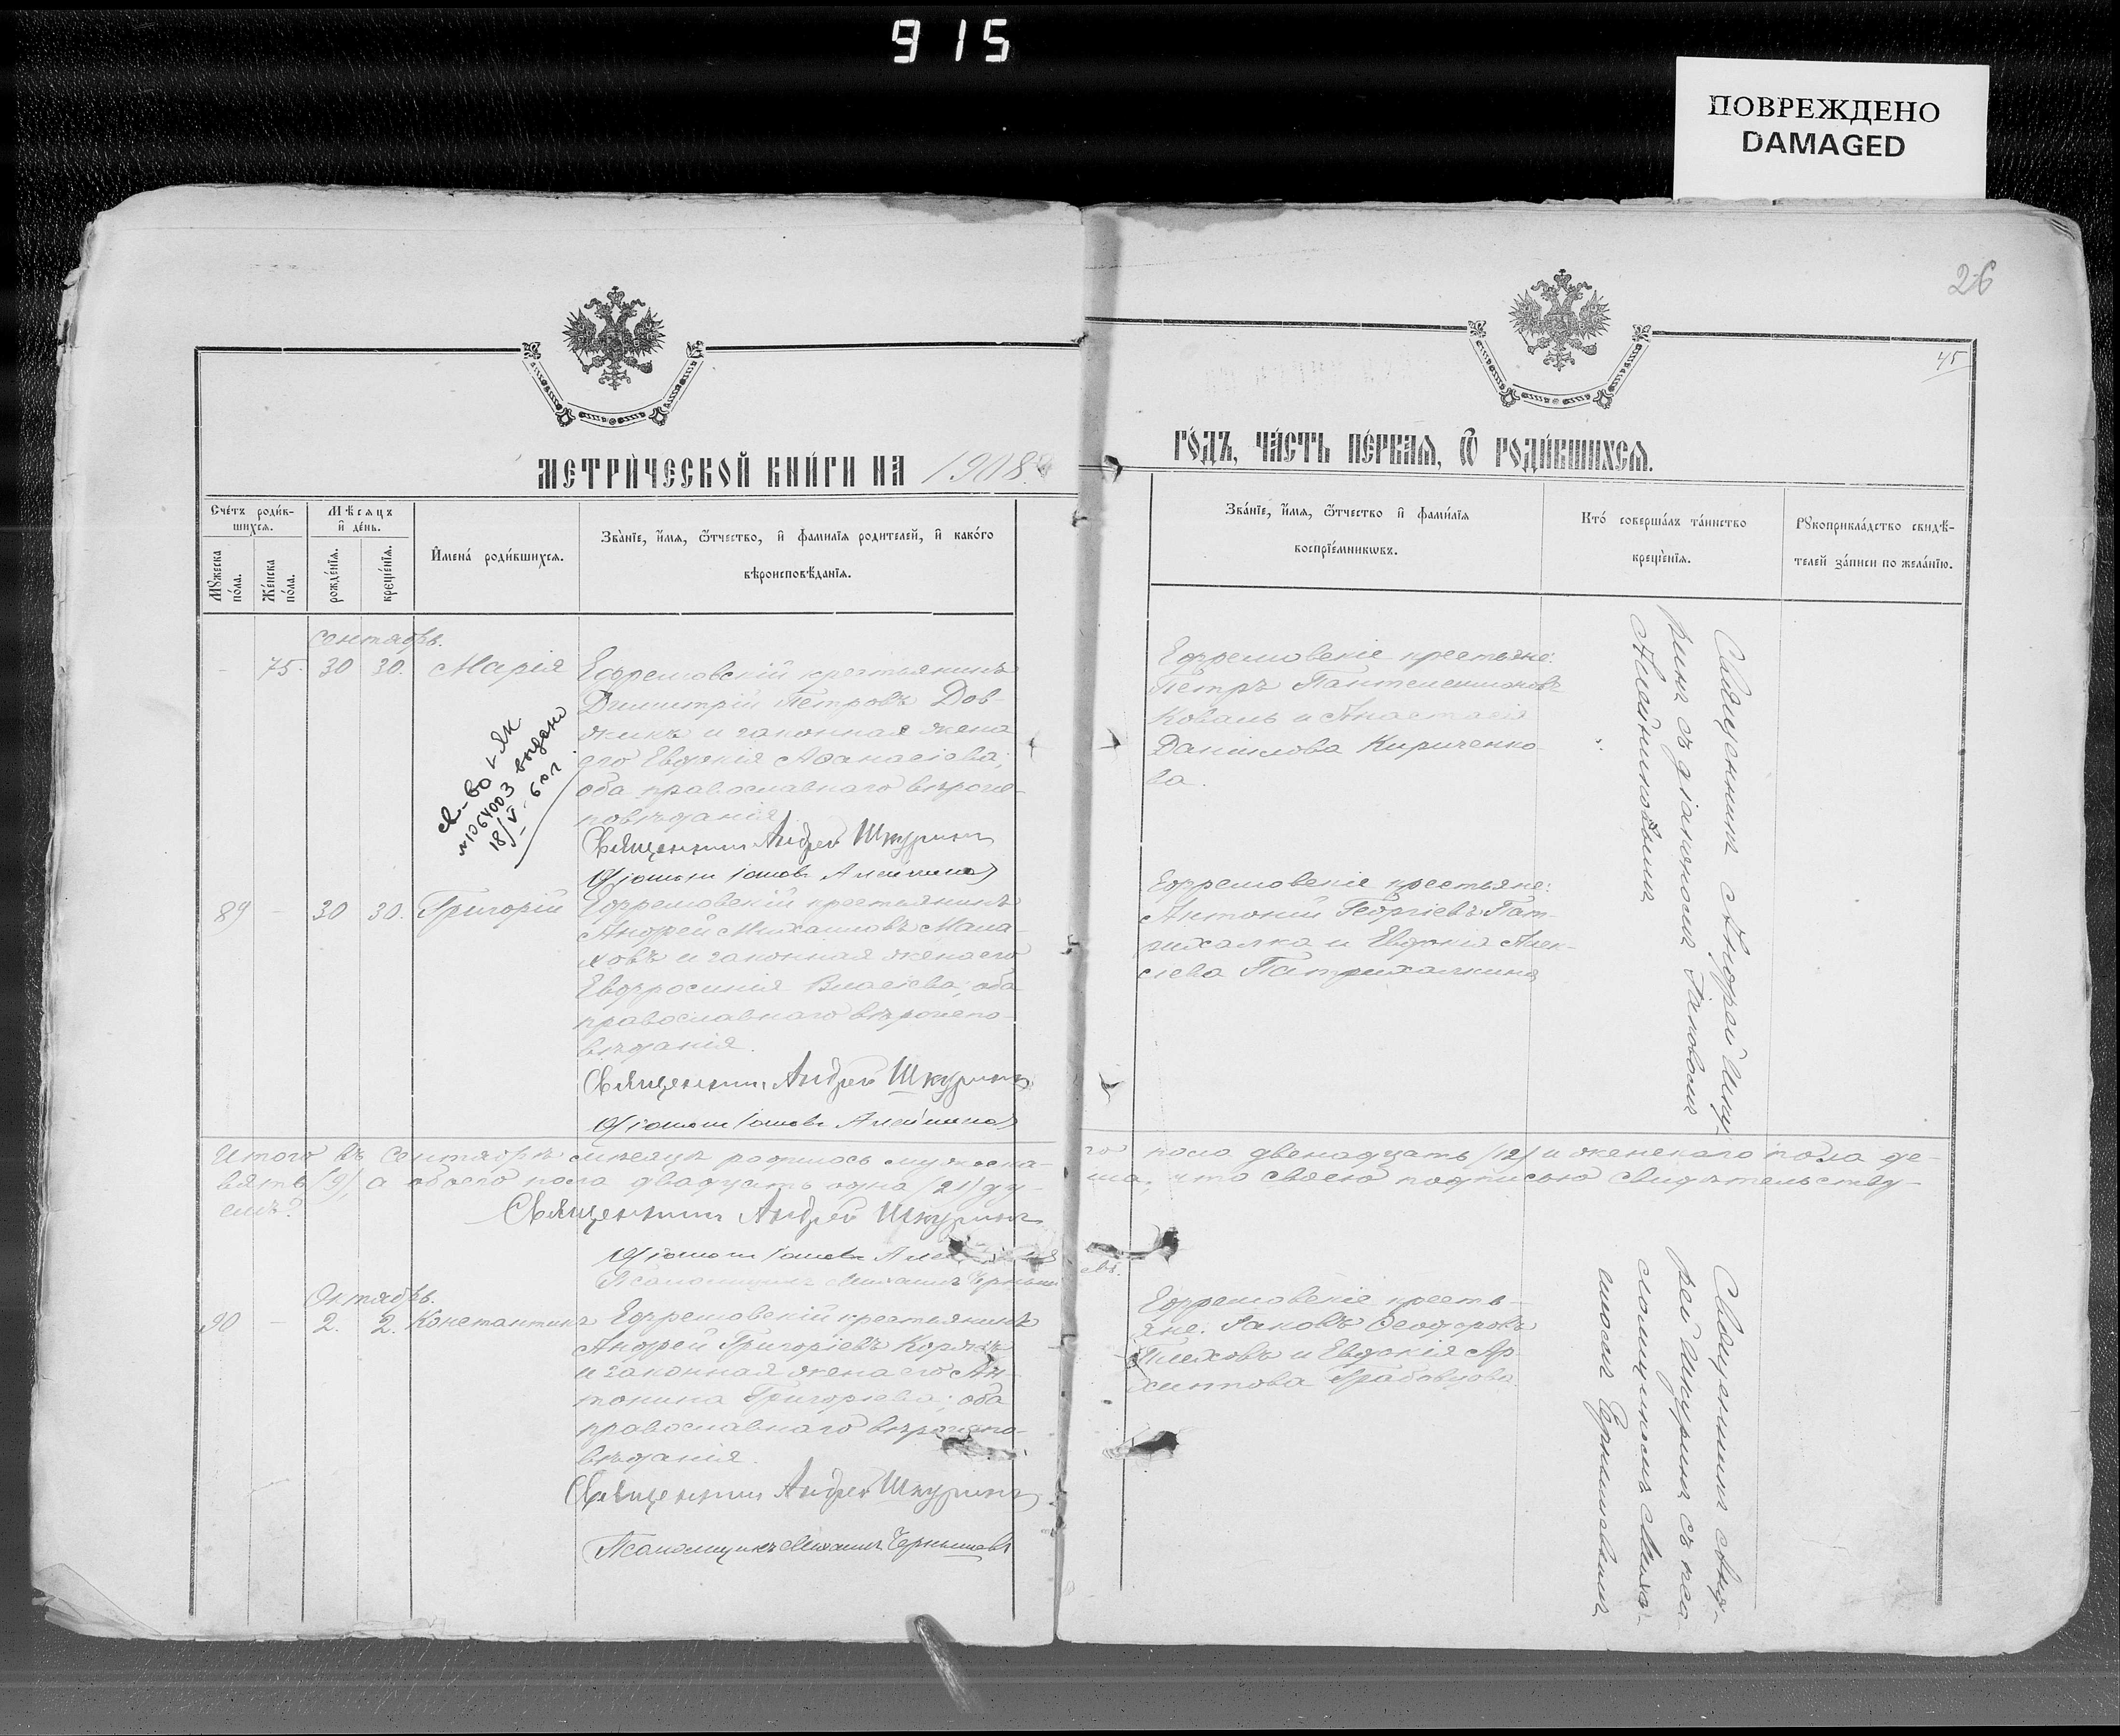 915
ПОВРЕЖДЕНО
DAMAGED
26
45
МЕТРИ́ЧЕСКОЙ КНИ́ГИ НА 1908
ГО́ДЪ, ЧА́СТЬ ПЕ́РВАЯ, Ѿ РОДИ́ВШИХСЯ.
Сче́тъ роди́в-
шихся.
Мѣсяцъ
и де́нь.
Мꙋжеска
по́ла.
Же́нска
по́ла.
рожде́нїя.
креще́нїя.
Имена̀ роди́вшихся.
Зва́нїе, и́мя, ѻ҆́тчество, и фами́лїя родителей, и како́го
вѣроисповѣ́данїя.
Зва́нїе, и́мя, ѻ҆́тчество и фами́лїя
воспрїе́мникѡвъ.
Кто́ соверша́лъ та́инство
креще́нїя.
Рꙋкоприкла́дство свидѣ́-
телей за́писи по жела́нїю.
Сентябрь.
- 75. 30 30. Марія
Ефремовскій крестьянинъ
Димитрій Петровъ Дов-
жикъ и законная жена
его Евдокія Аѳанасіева,
оба православнаго вѣроис-
повѣданія.
Священникъ Андрей Шкуринъ
Діаконъ Іаковъ Алейников
св-во I ЯК
№1064003 выдано
18/VI-60г.
Ефремовскіе крестьяне:
Петръ Пантелеимоновъ
Коваль и Анастасія
Данилова Кириченко-
ва.
Священникъ Андрей Шку-
ринъ съ діакономъ Іаковомъ
Алейниковымъ
89 - 30 30. Григорій
Ефремовскій крестьянинъ
Андрей Михаиловъ Мала-
ховъ и законная жена его
Евфросинія Власіева, оба
православнаго вѣроиспо-
вѣданія.
Священникъ Андрей Шкуринъ
Діаконъ Іаковъ Алейников
Ефремовскіе крестьяне:
Антоній Георгіевъ Пат-
рихалка и Евдокія Алек-
сіева Патрихалкина
Итого въ Сентябрѣ мѣсяцѣ родилось мужеска-
го пола двенадцать (12) и женскаго пола де-
вять (9), а обоего пола двадцать одна (21) ду-
ша; что своею подписью свидѣтельству-
емъ:
Священникъ Андрей Шкуринъ
Діаконъ Іаковъ
Псаломщикъ Михаилъ Чернышевъ.
Октябрь.
90 - 2. 2. Константинъ
Ефремовскій крестьянинъ
Андрей Григоріевъ Коржъ
и законная жена его Ан-
тонина Григорьева; оба
православнаго вѣроиспо-
вѣданія.
Священникъ Андрей Шкуринъ
Псаломщикъ Михаилъ Чернышевъ
Ефремовскіе кресть-
яне: Іаковъ Ѳеодоровъ
Плеховъ и Евдокія Ар-
хиппова Грабовцова.
Священникъ Анд-
рей Шкуринъ съ пса-
ломщикомъ Миха-
иломъ Чернышевымъ